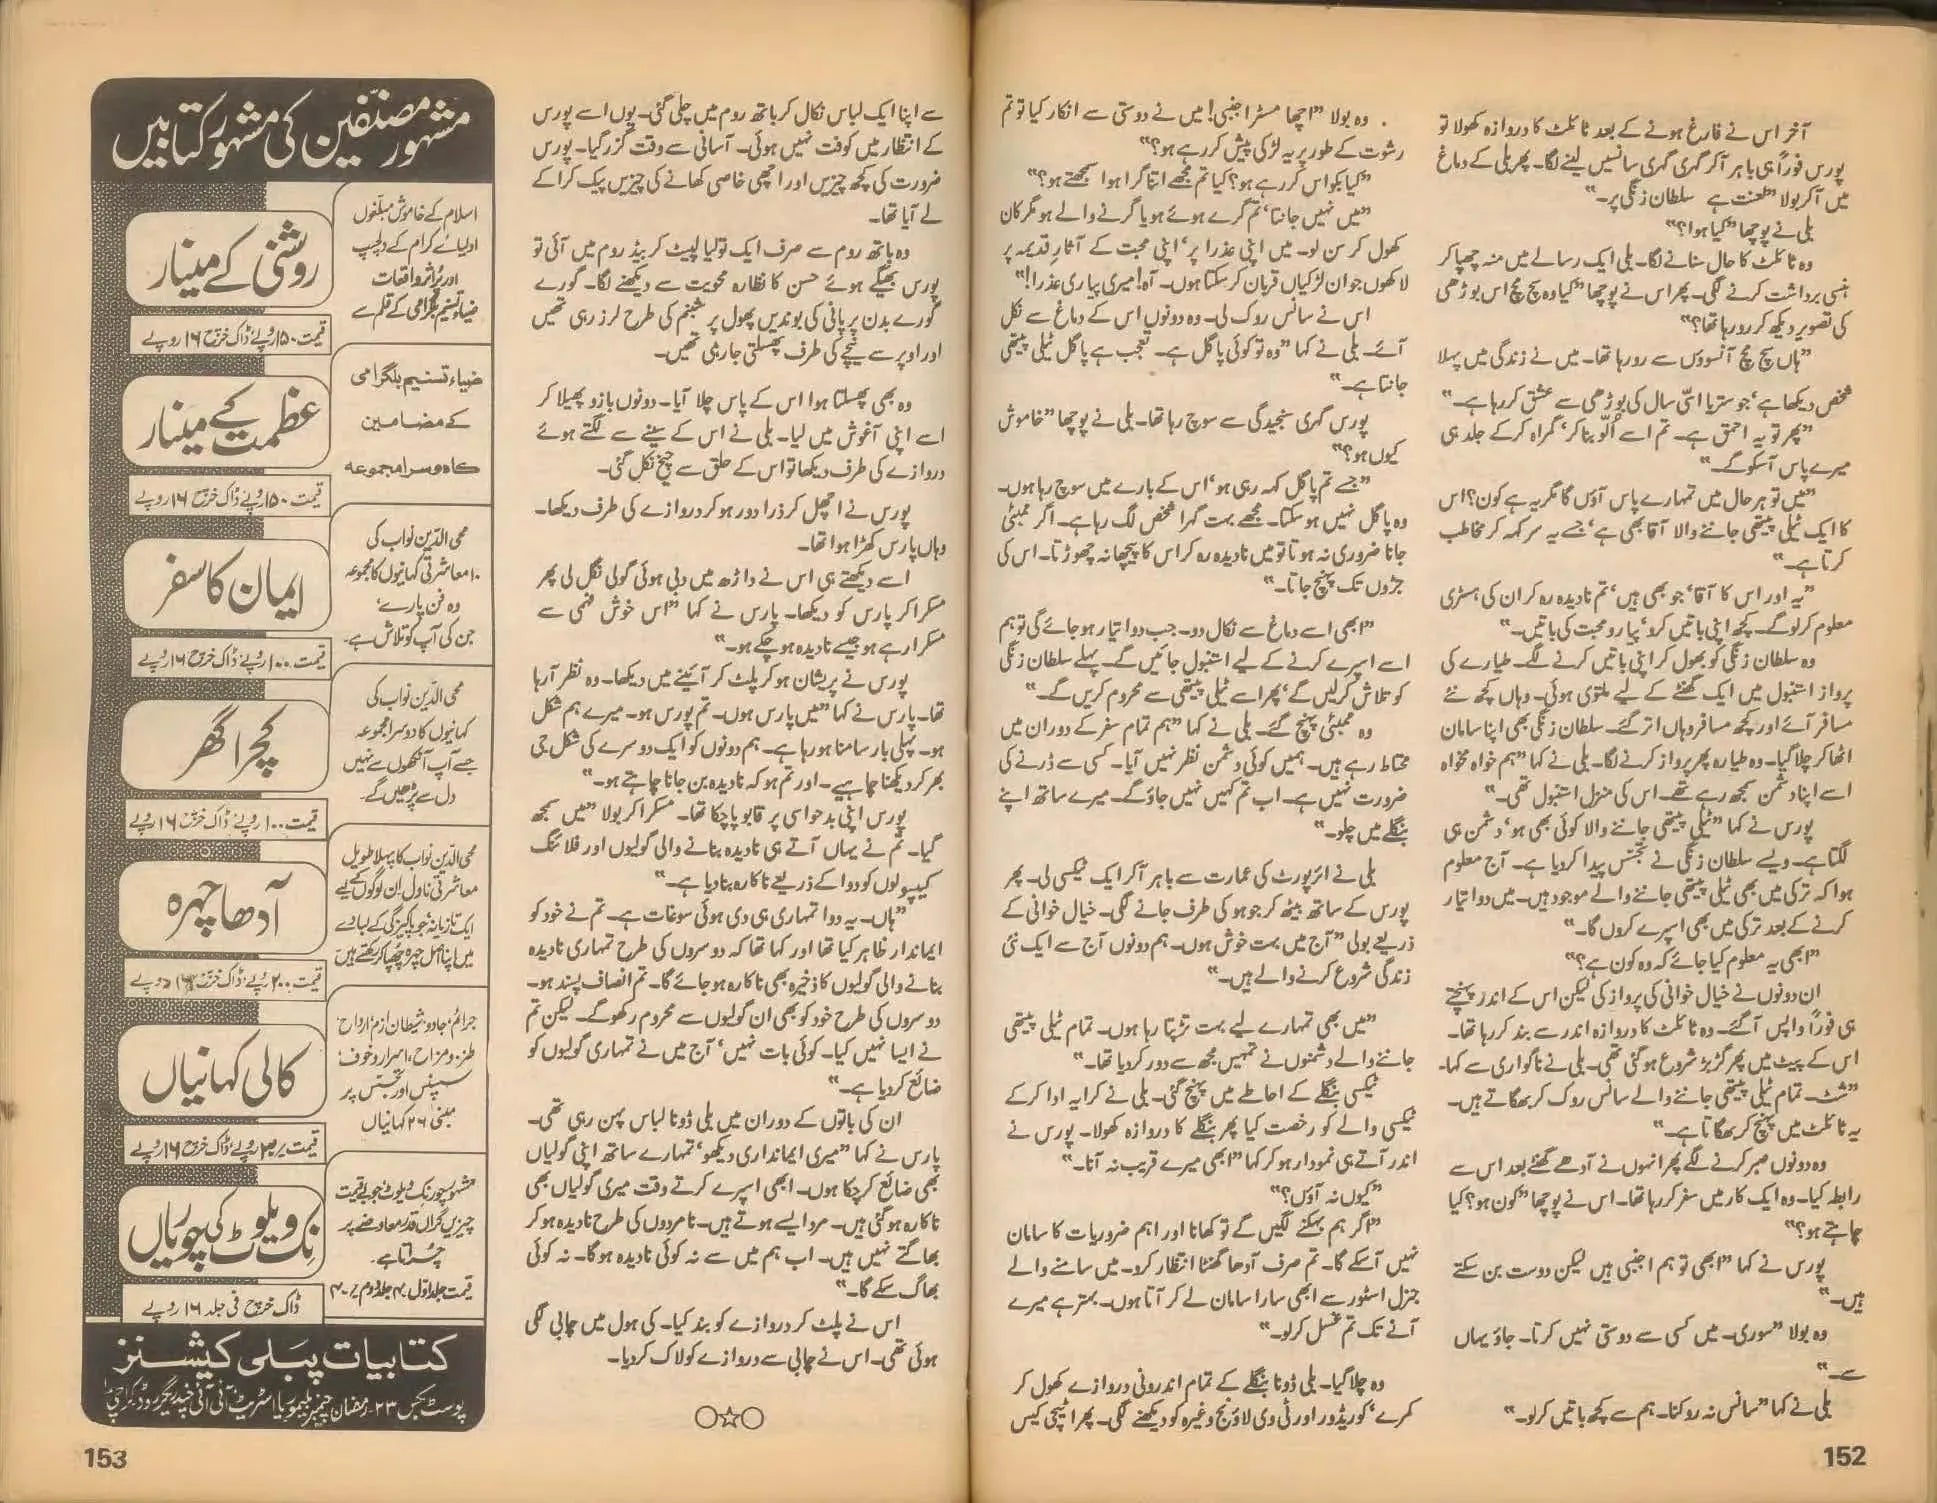 آخر اس نے فارغ ہونے کے بعد ٹائلٹ کا دروازہ کھولا تو
پورس فوراً ہی باہر آکر گہری گہری سانسیں لینے لگا۔ پھر بلی کے دماغ
میں آکر بولا "لعنت ہے سلطان زنگی پر۔"
بلی نے پوچھا "کیا ہوا؟"
وہ ٹائلٹ کا حال سنانے لگا۔ بلی ایک رسالے میں منہ چھپا کر
ہنسی برداشت کرنے لگی۔ پھر اس نے پوچھا "کیا وہ سچ مچ اس بوڑھی
کی تصویر دیکھ کر رو رہا تھا؟"
"ہاں سچ مچ آنسوؤں سے رو رہا تھا۔ میں نے زندگی میں پہلا
شخص دیکھا ہے' جو ستر یا اسّی سال کی بوڑھی سے عشق کر رہا ہے۔"
"پھر تو یہ احمق ہے۔ تم اسے اُلّو بنا کر' گمراہ کرکے جلد ہی
میرے پاس آسکو گے۔"
"میں تو ہر حال میں تمہارے پاس آؤں گا مگر یہ ہے کون؟ اس
کا ایک ٹیلی پیتھی جاننے والا آقا بھی ہے' جسے یہ سر کہہ کر مخاطب
کرتا ہے۔"
"یہ اور اس کا آقا' جو بھی ہیں' تم نادیدہ رہ کر ان کی ہسٹری
معلوم کرلو گے۔ کچھ اپنی باتیں کرو' پیار و محبت کی باتیں۔"
وہ سلطان زنگی کو بھول کر اپنی باتیں کرنے لگے۔ طیارے کی
پرواز استنبول میں ایک گھنٹے کے لیے ملتوی ہوئی۔ وہاں کچھ نئے
مسافر آئے اور کچھ مسافر وہاں اتر گئے۔ سلطان زنگی بھی اپنا سامان
اٹھا کر چلا گیا۔ وہ طیارہ پھر پرواز کرنے لگا۔ بلی نے کہا "ہم خواہ مخواہ
اسے اپنا دشمن سمجھ رہے تھے۔ اس کی منزل استنبول تھی۔"
پورس نے کہا "ٹیلی پیتھی جاننے والا کوئی بھی ہو' دشمن ہی
لگتا ہے۔ ویسے سلطان زنگی نے تجسّس پیدا کر دیا ہے۔ آج معلوم
ہوا کہ ترکی میں بھی ٹیلی پیتھی جاننے والے موجود ہیں۔ میں دوا تیار
کرنے کے بعد ترکی میں بھی اسپرے کروں گا۔"
"ابھی یہ معلوم کیا جائے کہ وہ کون ہے؟"
ان دونوں نے خیال خوانی کی پرواز کی لیکن اس کے اندر پہنچتے
ہی فوراً واپس آگئے۔ وہ ٹائلٹ کا دروازہ اندر سے بند کر رہا تھا۔
اس کے پیٹ میں پھر گڑبڑ شروع ہوگئی تھی۔ بلی نے ناگواری سے کہا۔
"شٹ۔ تمام ٹیلی پیتھی جاننے والے سانس روک کر بھگاتے ہیں۔
یہ ٹائلٹ میں پہنچ کر بھگاتا ہے۔"
وہ دونوں صبر کرنے لگے پھر انہوں نے آدھے گھنٹے بعد اس سے
رابطہ کیا۔ وہ ایک کار میں سفر کر رہا تھا۔ اس نے پوچھا "کون ہو؟ کیا
چاہتے ہو؟"
پورس نے کہا "ابھی تو ہم اجنبی ہیں لیکن دوست بن سکتے
ہیں۔"
وہ بولا "سوری۔ میں کسی سے دوستی نہیں کرتا۔ جاؤ یہاں
سے۔"
بلی نے کہا "سانس نہ روکنا۔ ہم سے کچھ باتیں کرلو۔"
152
وہ بولا "اچھا مسٹر اجنبی! میں نے دوستی سے انکار کیا تو تم
رشوت کے طور پر یہ لڑکی پیش کر رہے ہو؟"
"کیا بکواس کر رہے ہو؟ کیا تم مجھے اتنا گرا ہوا سمجھتے ہو؟"
"میں نہیں جانتا' تم گرے ہوئے ہو یا گرنے والے ہو مگر کان
کھول کر سن لو۔ میں اپنی عذرا پر' اپنی محبت کے آثارِ قدیمہ پر
لاکھوں جوان لڑکیاں قربان کر سکتا ہوں۔ آہ! میری پیاری عذرا!"
اس نے سانس روک لی۔ وہ دونوں اس کے دماغ سے نکل
آئے۔ بلی نے کہا "وہ تو کوئی پاگل ہے۔ تعجب ہے پاگل ٹیلی پیتھی
جانتا ہے۔"
پورس گہری سنجیدگی سے سوچ رہا تھا۔ بلی نے پوچھا "خاموش
کیوں ہو؟"
"جسے تم پاگل کہہ رہی ہو' اس کے بارے میں سوچ رہا ہوں۔
وہ پاگل نہیں ہو سکتا۔ مجھے بہت گہرا شخص لگ رہا ہے۔ اگر ممبئی
جانا ضروری نہ ہوتا تو میں نادیدہ رہ کر اس کا پیچھا نہ چھوڑتا۔ اس کی
جڑوں تک پہنچ جاتا۔"
"ابھی اسے دماغ سے نکال دو۔ جب دوا تیار ہو جائے گی تو ہم
اسے اسپرے کرنے کے لیے استنبول جائیں گے۔ پہلے سلطان زنگی
کو تلاش کرلیں گے' پھر اسے ٹیلی پیتھی سے محروم کریں گے۔"
وہ ممبئی پہنچ گئے۔ بلی نے کہا "ہم تمام سفر کے دوران میں
محتاط رہے ہیں۔ ہمیں کوئی دشمن نظر نہیں آیا۔ کسی سے ڈرنے کی
ضرورت نہیں ہے۔ اب تم کہیں نہیں جاؤ گے۔ میرے ساتھ اپنے
بنگلے میں چلو۔"
بلی نے ائرپورٹ کی عمارت سے باہر آکر ایک ٹیکسی لی۔ پھر
پورس کے ساتھ بیٹھ کر جوہو کی طرف جانے لگی۔ خیال خوانی کے
ذریعے بولی "آج میں بہت خوش ہوں۔ ہم دونوں آج سے ایک نئی
زندگی شروع کرنے والے ہیں۔"
"میں بھی تمہارے لیے بہت تڑپتا رہا ہوں۔ تمام ٹیلی پیتھی
جاننے والے دشمنوں نے تمہیں مجھ سے دور کر دیا تھا۔"
ٹیکسی بنگلے کے احاطے میں پہنچ گئی۔ بلی نے کرایہ ادا کرکے
ٹیکسی والے کو رخصت کیا پھر بنگلے کا دروازہ کھولا۔ پورس نے
اندر آتے ہی نمودار ہو کر کہا "ابھی میرے قریب نہ آنا۔"
"کیوں نہ آؤں؟"
"اگر ہم بہکنے لگیں گے تو کھانا اور اہم ضروریات کا سامان
نہیں آسکے گا۔ تم صرف آدھا گھنٹا انتظار کرو۔ میں سامنے والے
جنرل اسٹور سے ابھی سارا سامان لے کر آتا ہوں۔ بہتر ہے میرے
آنے تک تم غسل کرلو۔"
وہ چلا گیا۔ بلی ڈونا بنگلے کے تمام اندرونی دروازے کھول کر
کمرے' کوریڈور اور ٹی وی لاؤنج وغیرہ کو دیکھنے لگی۔ پھر اٹیچی کیس
سے اپنا ایک لباس نکال کر باتھ روم میں چلی گئی۔ یوں اسے پورس
کے انتظار میں کوفت نہیں ہوئی۔ آسانی سے وقت گزر گیا۔ پورس
ضرورت کی کچھ چیزیں اور اچھی خاصی کھانے کی چیزیں پیک کرا کے
لے آیا تھا۔
وہ باتھ روم سے صرف ایک تولیا لپیٹ کر بیڈ روم میں آئی تو
پورس بھیگے ہوئے حسن کا نظارہ محویت سے دیکھنے لگا۔ گورے
گورے بدن پر پانی کی بوندیں پھول پر شبنم کی طرح لرز رہی تھیں
اور اوپر سے نیچے کی طرف پھسلتی جا رہی تھیں۔
وہ بھی پھسلتا ہوا اس کے پاس چلا آیا۔ دونوں بازو پھیلا کر
اسے اپنی آغوش میں لیا۔ بلی نے اس کے سینے سے لگتے ہوئے
دروازے کی طرف دیکھا تو اس کے حلق سے چیخ نکل گئی۔
پورس نے اچھل کر ذرا دور ہو کر دروازے کی طرف دیکھا۔
وہاں پارس کھڑا ہوا تھا۔
اسے دیکھتے ہی اس نے داڑھ میں دبی ہوئی گولی نگل لی پھر
مسکرا کر پارس کو دیکھا۔ پارس نے کہا "اس خوش فہمی سے
مسکرا رہے ہو جیسے نادیدہ ہو چکے ہو۔"
پورس نے پریشان ہو کر پلٹ کر آئینے میں دیکھا۔ وہ نظر آرہا
تھا۔ پارس نے کہا "میں پارس ہوں۔ تم پورس ہو۔ میرے ہم شکل
ہو۔ پہلی بار سامنا ہو رہا ہے۔ ہم دونوں کو ایک دوسرے کی شکل جی
بھر کر دیکھنا چاہیے۔ اور تم ہو کہ نادیدہ بن جانا چاہتے ہو۔"
پورس اپنی بدحواسی پر قابو پا چکا تھا۔ مسکرا کر بولا "میں سمجھ
گیا۔ تم نے یہاں آتے ہی نادیدہ بنانے والی گولیوں اور فلائنگ
کیپسولوں کو دوا کے ذریعے ناکارہ بنا دیا ہے۔"
"ہاں۔ یہ دوا تمہاری ہی دی ہوئی سوغات ہے۔ تم نے خود کو
ایماندار ظاہر کیا تھا اور کہا تھا کہ دوسروں کی طرح تمہاری نادیدہ
بنانے والی گولیوں کا ذخیرہ بھی ناکارہ ہو جائے گا۔ تم انصاف پسند ہو۔
دوسروں کی طرح خود کو بھی ان گولیوں سے محروم رکھو گے۔ لیکن تم
نے ایسا نہیں کیا۔ کوئی بات نہیں' آج میں نے تمہاری گولیوں کو
ضائع کر دیا ہے۔"
ان کی باتوں کے دوران میں بلی ڈونا لباس پہن رہی تھی۔
پارس نے کہا "میری ایمانداری دیکھو' تمہارے ساتھ اپنی گولیاں
بھی ضائع کر چکا ہوں۔ ابھی اسپرے کرتے وقت میری گولیاں بھی
ناکارہ ہو گئی ہیں۔ مرد ایسے ہوتے ہیں۔ نامردوں کی طرح نادیدہ ہو کر
بھاگتے نہیں ہیں۔ اب ہم میں سے نہ کوئی نادیدہ ہوگا۔ نہ کوئی
بھاگ سکے گا۔"
اس نے پلٹ کر دروازے کو بند کیا۔ کی ہول میں چابی لگی
ہوئی تھی۔ اس نے چابی سے دروازے کو لاک کر دیا۔
مشہور مصنّفین کی مشہور کتابیں
اسلام کے خاموش مبلّغوں
اولیائے کرام کے دلچسپ
اور پُراثر واقعات
ضیاء تسنیم بلگرامی کے قلم سے
روشنی کے مینار
قیمت ۱۵۰ روپے ڈاک خرچ ۱۶ روپے
ضیاء تسنیم بلگرامی
کے مضامین
کا دوسرا مجموعہ
عظمت کے مینار
قیمت ۱۵۰ روپے ڈاک خرچ ۱۶ روپے
محی الدّین نواب کی
۱۰ معاشرتی کہانیوں کا مجموعہ
وہ فن پارے'
جن کی آپ کو تلاش ہے۔
ایمان کا سفر
قیمت ۱۰۰ روپے ڈاک خرچ ۱۶ روپے
محی الدّین نواب کی
کہانیوں کا دوسرا مجموعہ
جسے آپ آنکھوں سے نہیں
دل سے پڑھیں گے۔
کچرا گھر
قیمت ۱۰۰ روپے ڈاک خرچ ۱۶ روپے
محی الدّین نواب کا پہلا طویل
معاشرتی ناول ان لوگوں کے لیے
ایک تازیانہ جو پاکیزگی کے لبادے
میں اپنا اصل چہرہ چھپا کر رکھتے ہیں
آدھا چہرہ
قیمت ۲۰۰ روپے ڈاک خرچ ۱۶ روپے
جرائم' جادو' شیطان ازم' ارواح'
طنز و مزاح' اسرار و خوف'
سسپنس اور تجسّس پر
مبنی ۲۶ کہانیاں
کالی کہانیاں
روپے ڈاک خرچ ۱۶ روپے
مشہور چور نک ویلوٹ عجوبے قیمت
چیزیں گراں قدر معاوضے پر
چُراتا ہے۔
قیمت جلد اوّل ۴۰ جلد دوم ۴۰
نک ویلوٹ کی چوریاں
ڈاک خرچ فی جلد ۱۶ روپے
کتابیات پبلی کیشنز
پوسٹ بکس ۲۳۔ رمضان چیمبرز بلیموریا اسٹریٹ آئی آئی چندریگر روڈ کراچی
153